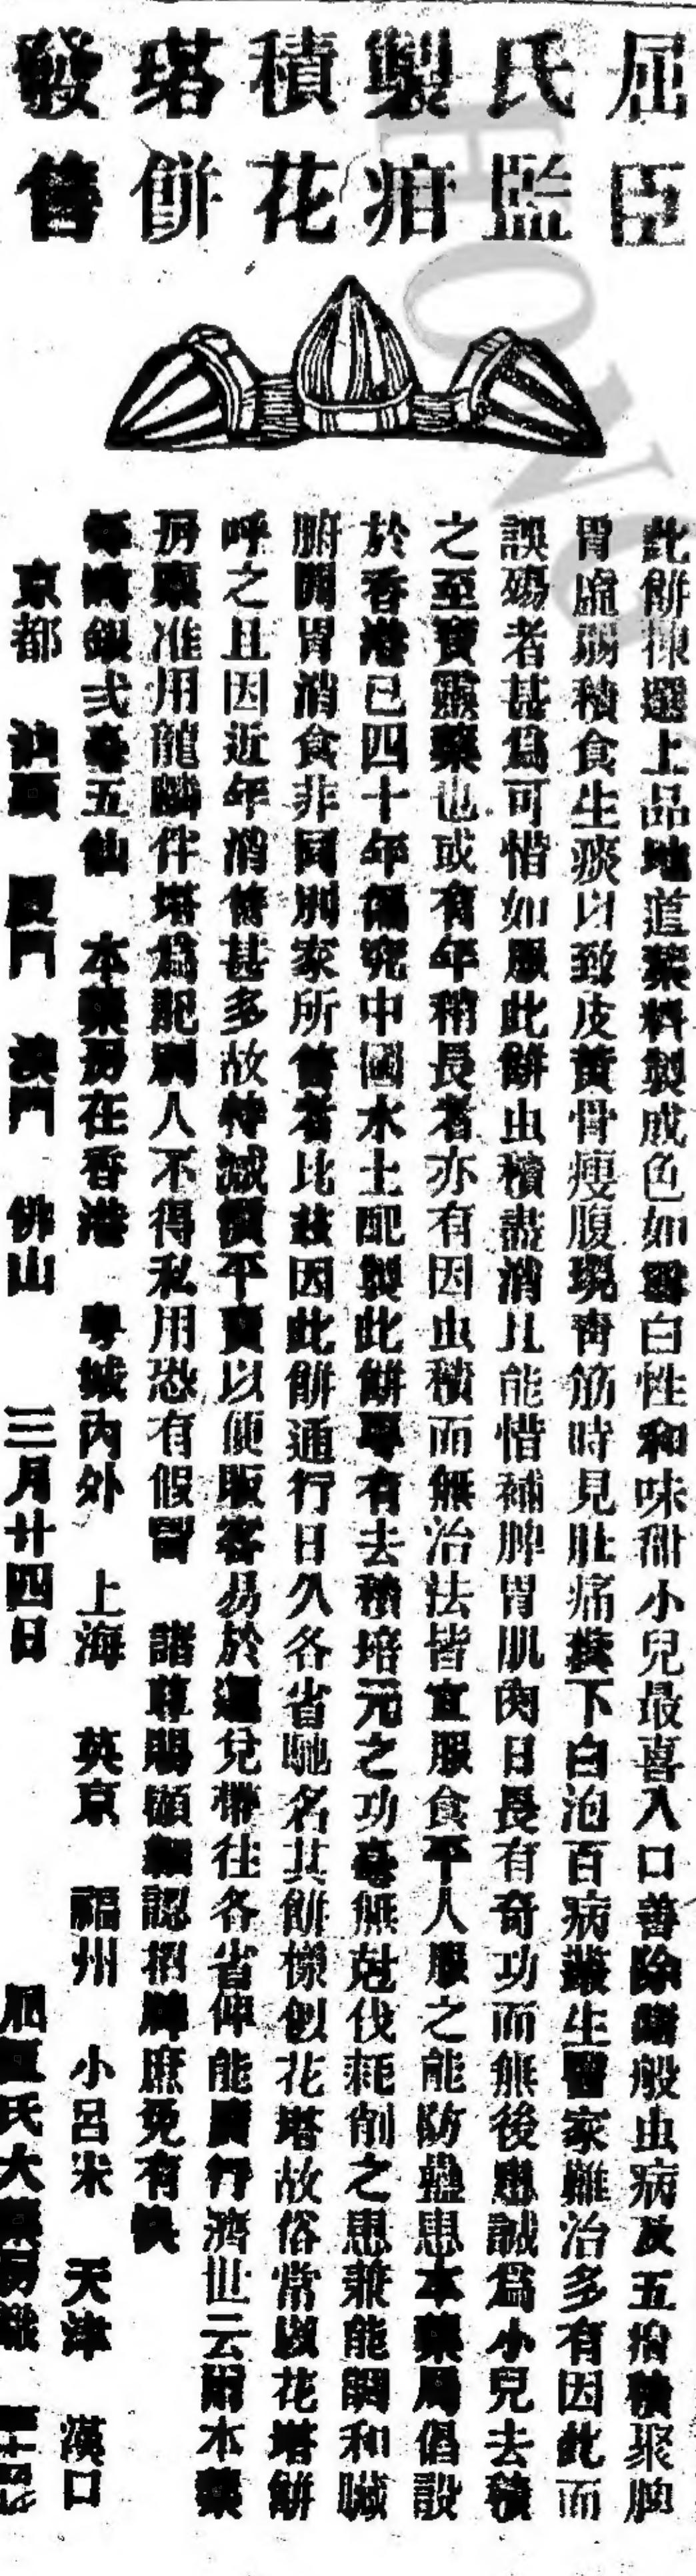 屈臣
氏監
製疳
積花
塔餅
發售
此餅揀選上品地道藥料製成色如雪白性和味甜小兒最喜入口善除諸般虫病及五疳積聚脾
胃虛弱積食生痰以致皮黃骨瘦腹現青筋時見肚痛或下白泡百病叢生醫家難治多有因此而
誤殤者甚爲可惜如服此餅虫積盡消且能偕補脾胃肌肉日長有奇功而無後患誠爲小兒去積
之至寶靈藥也或有年稍長者亦有因虫積而無治法皆宜服食平人服之能防蠱患本藥局倡設
於香港已四十年備究中國水土配製此餅專有去積培元之功毫無尅伐耗削之患兼能調和臟
腑開胃消食非同別家所售者比玆因此餅通行日久各省馳名其餅樣似花塔故俗常以花塔餅
呼之且因近年消售甚多故特減價平賣以便販客易於兌帶往各省俾能廣行濟世云爾本藥
房稟准用龍麟伴塔爲記別人不得私用恐有假冒 諸尊賜顧細認招牌庶免有悞
每樽銀弍毫五仙 本藥房在香港 粵城內外 上海 英京 福州 小呂宋 天津 漢口
京都 汕頭 厦門 澳門 佛山 三月廿四日 屈臣氏大藥房啟